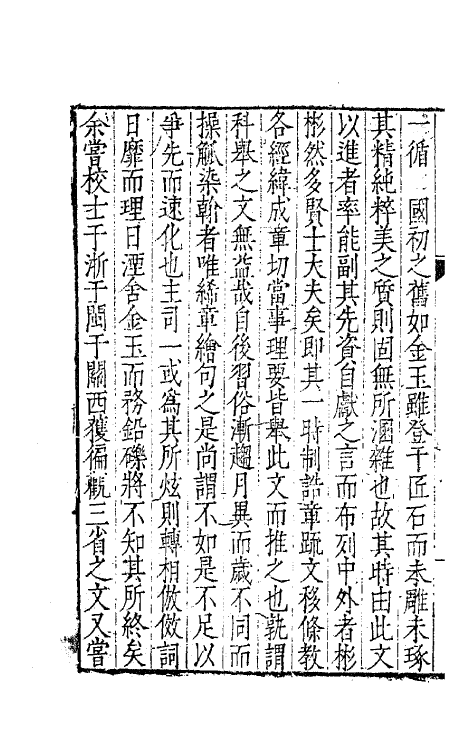 一循國初之舊如金玉雖登于匠石而未雕未琢
其精純粹美之質則固無所溷雜也故其時由此文
以進者率能副其先資自獻之言而布列中外者彬
彬然多賢士大夫矣即其一時制誥章䟽文移條教
各經緯成章切當事理要皆舉此文而推之也孰謂
科舉之文無益哉自後習俗漸趨月異而歲不同而
操觚染翰者唯絺章繪句之是尚謂不如是不足以
爭先而速化也主司一或為其所炫則轉相倣傚詞
日靡而理日湮舍金玉而務鉛礫將不知其所終矣
余嘗校士于浙于閩于關西獲徧觀三省之文又嘗